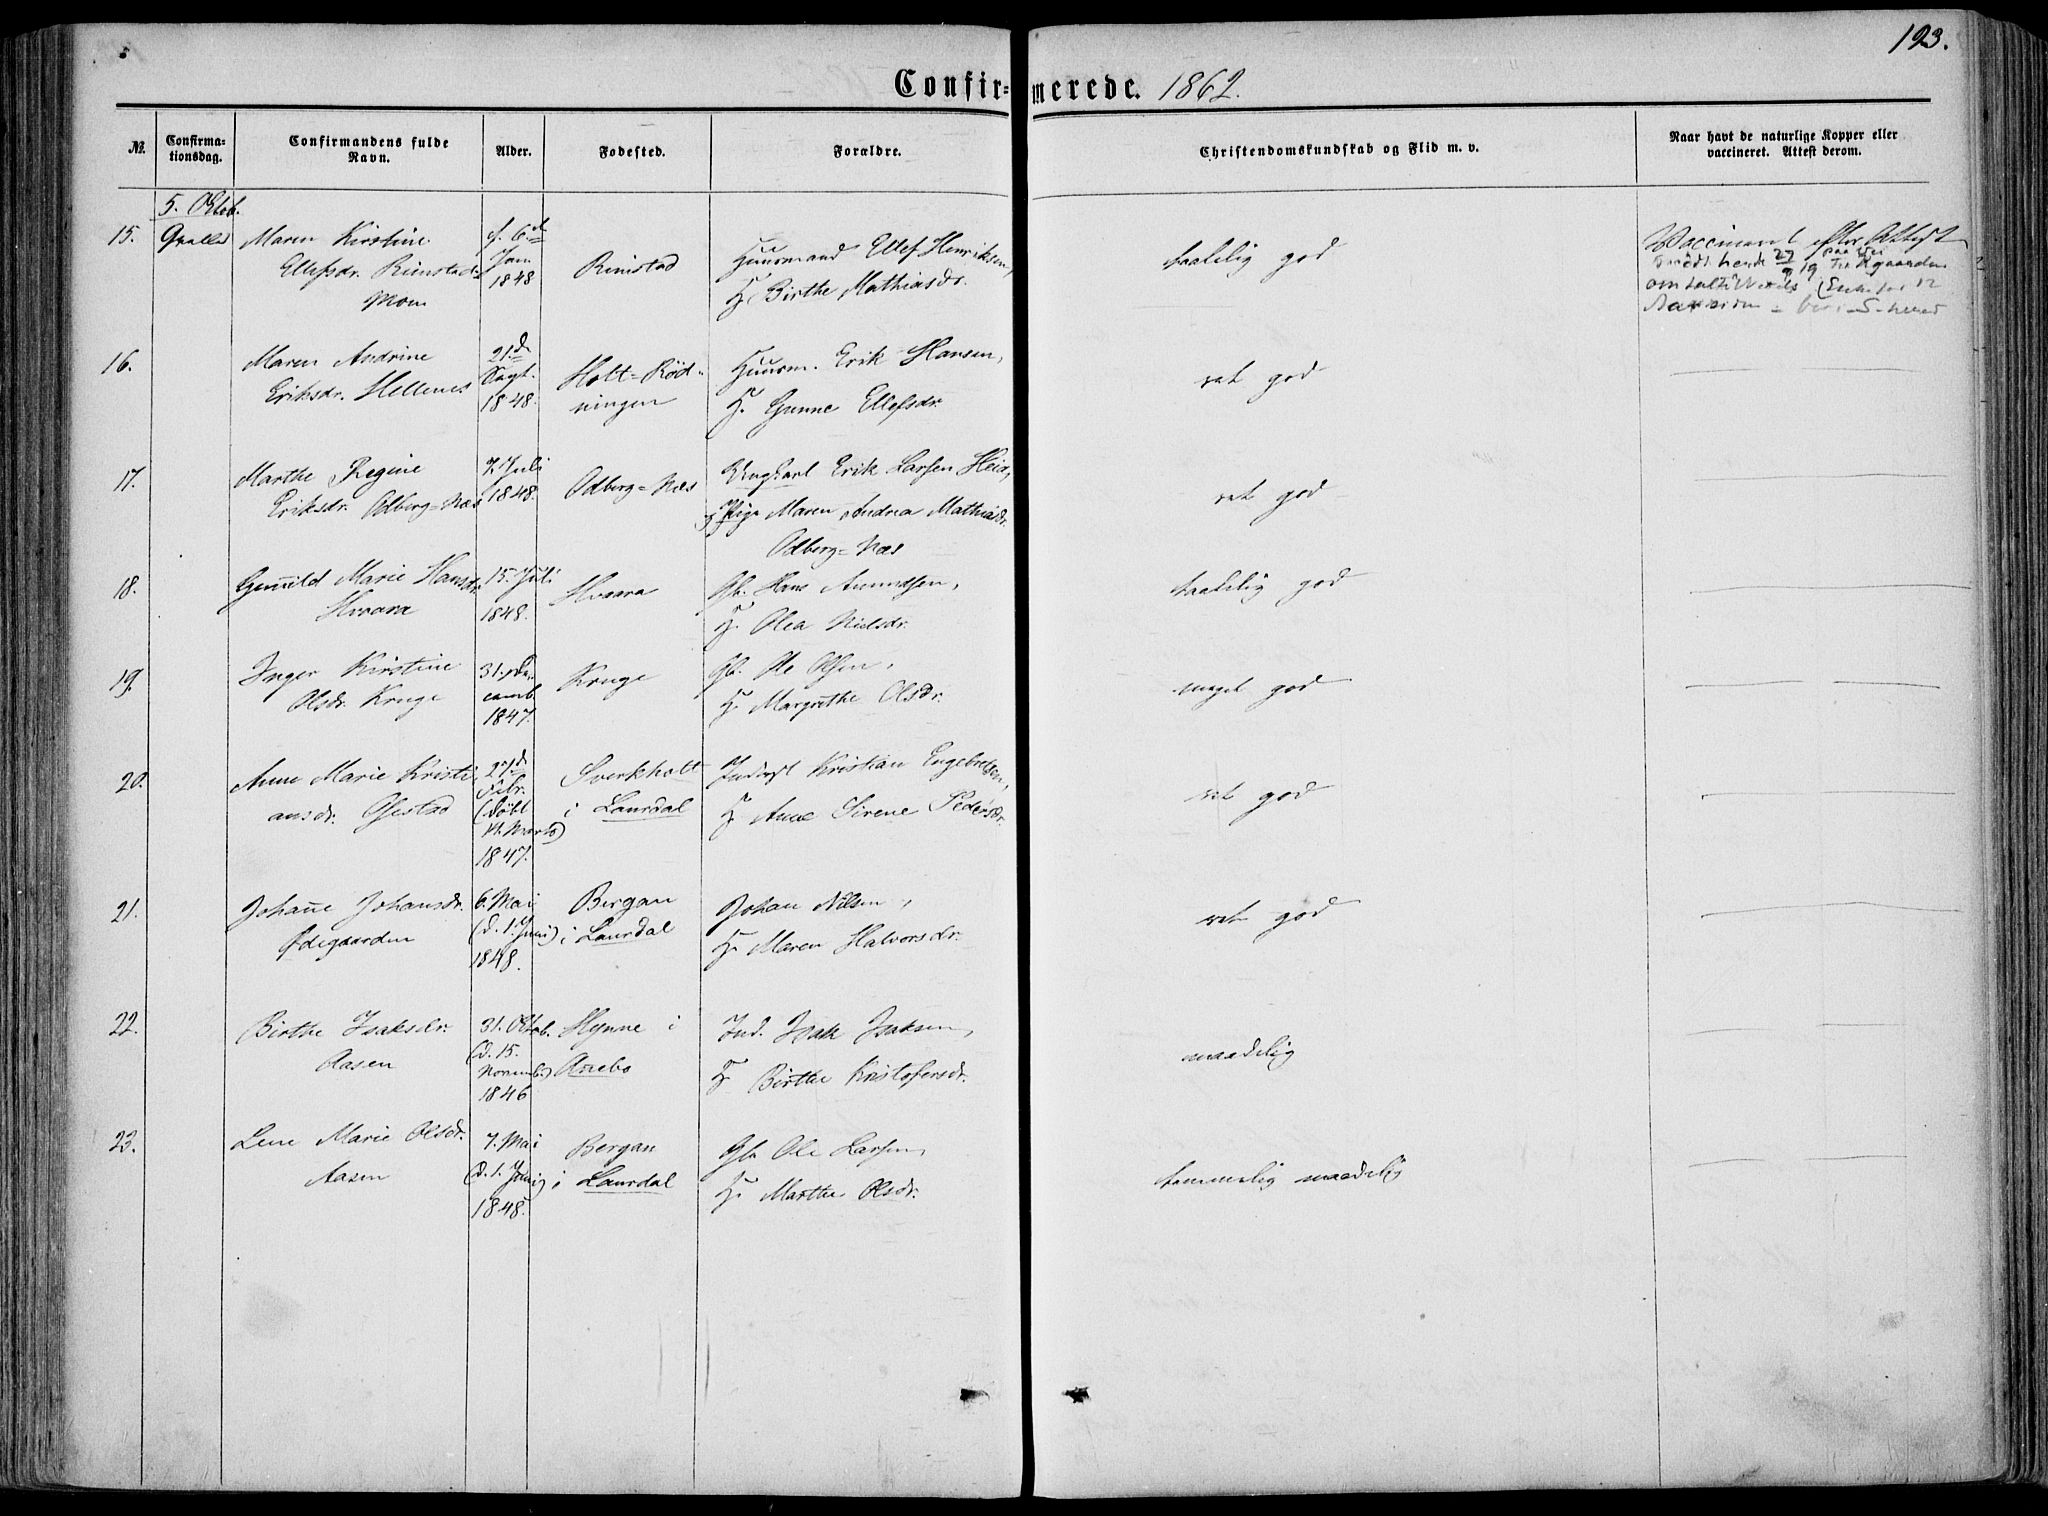 193.
Confir=merede. 1862.
№
Confirma-
tionsdag.
Confirmandens fulde
Navn.
Alder.
Fødested.
Forældre.
Christendomskundskab og Flid m. v.
Naar havt de naturlige Kopper eller
vaccineret. Attest derom.
5. Oktob.
15. Qvelle
Maren Kirstine
Ellefsdr. Rimstad-
Moen
f. 6te
Jan.
1848
Rimstad
Huusmand Ellef Henriksen,
H. Birthe Mathiasdr.
taalelig god
Vaccineret efter Attest
16.
Maren Andrine
Eriksdr. Hellenes
21de
Sept.
1848.
Holt=Rød-
ningen
Huusm. Erik Hansen,
H. Gunne Ellefsdr.
ret god
17.
Marthe Regine
Eriksdr. Odberg=Næs
7. Juli
1848.
Odberg=Næs
Ungkarl Erik Larsen Heia,
Pige Maren Andrea Mathiasdr.
Odberg=Næs
ret god
18.
Gunnild Marie Hansdr.
Hvaara
15. Juli
1848.
Hvaara
Gb. Hans Amundsen,
H. Olea Nielsdr.
taalelig god
19.
Inger Kirstine
Olsdr. Kruge
31. De-
cemb.
1847.
Kruge
Gb. Ole Olsen,
H. Margrethe Olsdr.
meget god
20.
Anne Marie Kristi-
ansdr. Gjestad
27de
Febr.
(døbt
14. Marts)
1847.
Sverkholt
i Laurdal
Inderst Kristian Engebretsen,
H. Anne Sirene Pedersdr.
ret god
21.
Johanne Johansdr.
Ødegaarden
6. Mai
(d. 1. Juni)
1848.
Bergan
i Laurdal
Johan Nilsen,
H. Maren Halvorsdr.
ret god
22.
Birthe Isaksdr.
Aasen
31. Oktob.
(d. 15.
Novemb.)
1846
Hynne i
Anebo
Ind. Isak Isaksen,
H. Birthe Kristofersdr.
maadelig
23.
Lene Marie Olsdr.
Aasen
7. Mai
(d. 1. Juni)
1848.
Bergan
i Laurdal
Gb. Ole Larsen,
H. Marthe Olsdr.
temmelig maadelig